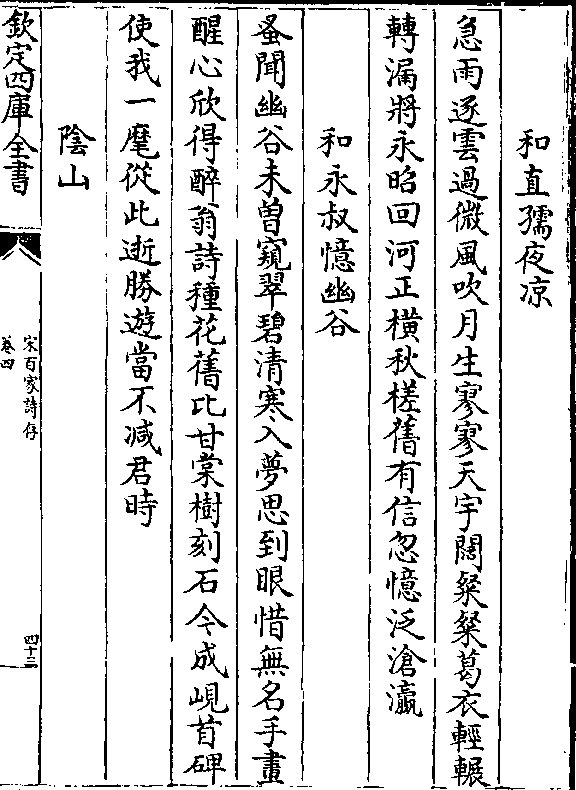 和直孺夜凉
急雨逐雲過微風吹月生寥寥天宇闊粲粲葛衣輕輾
轉漏將永昭回河正橫秋槎舊有信忽憶泛滄瀛
和永叔憶幽谷
蚤聞幽谷未曾窺翠碧清寒入夢思到眼惜無名手畫
醒心欣得醉翁詩種花舊比甘棠樹刻石今成峴首碑
使我一麾從此逝勝遊當不减君時
陰山
欽定四庫全書
宋百家詩存
卷四
四十三